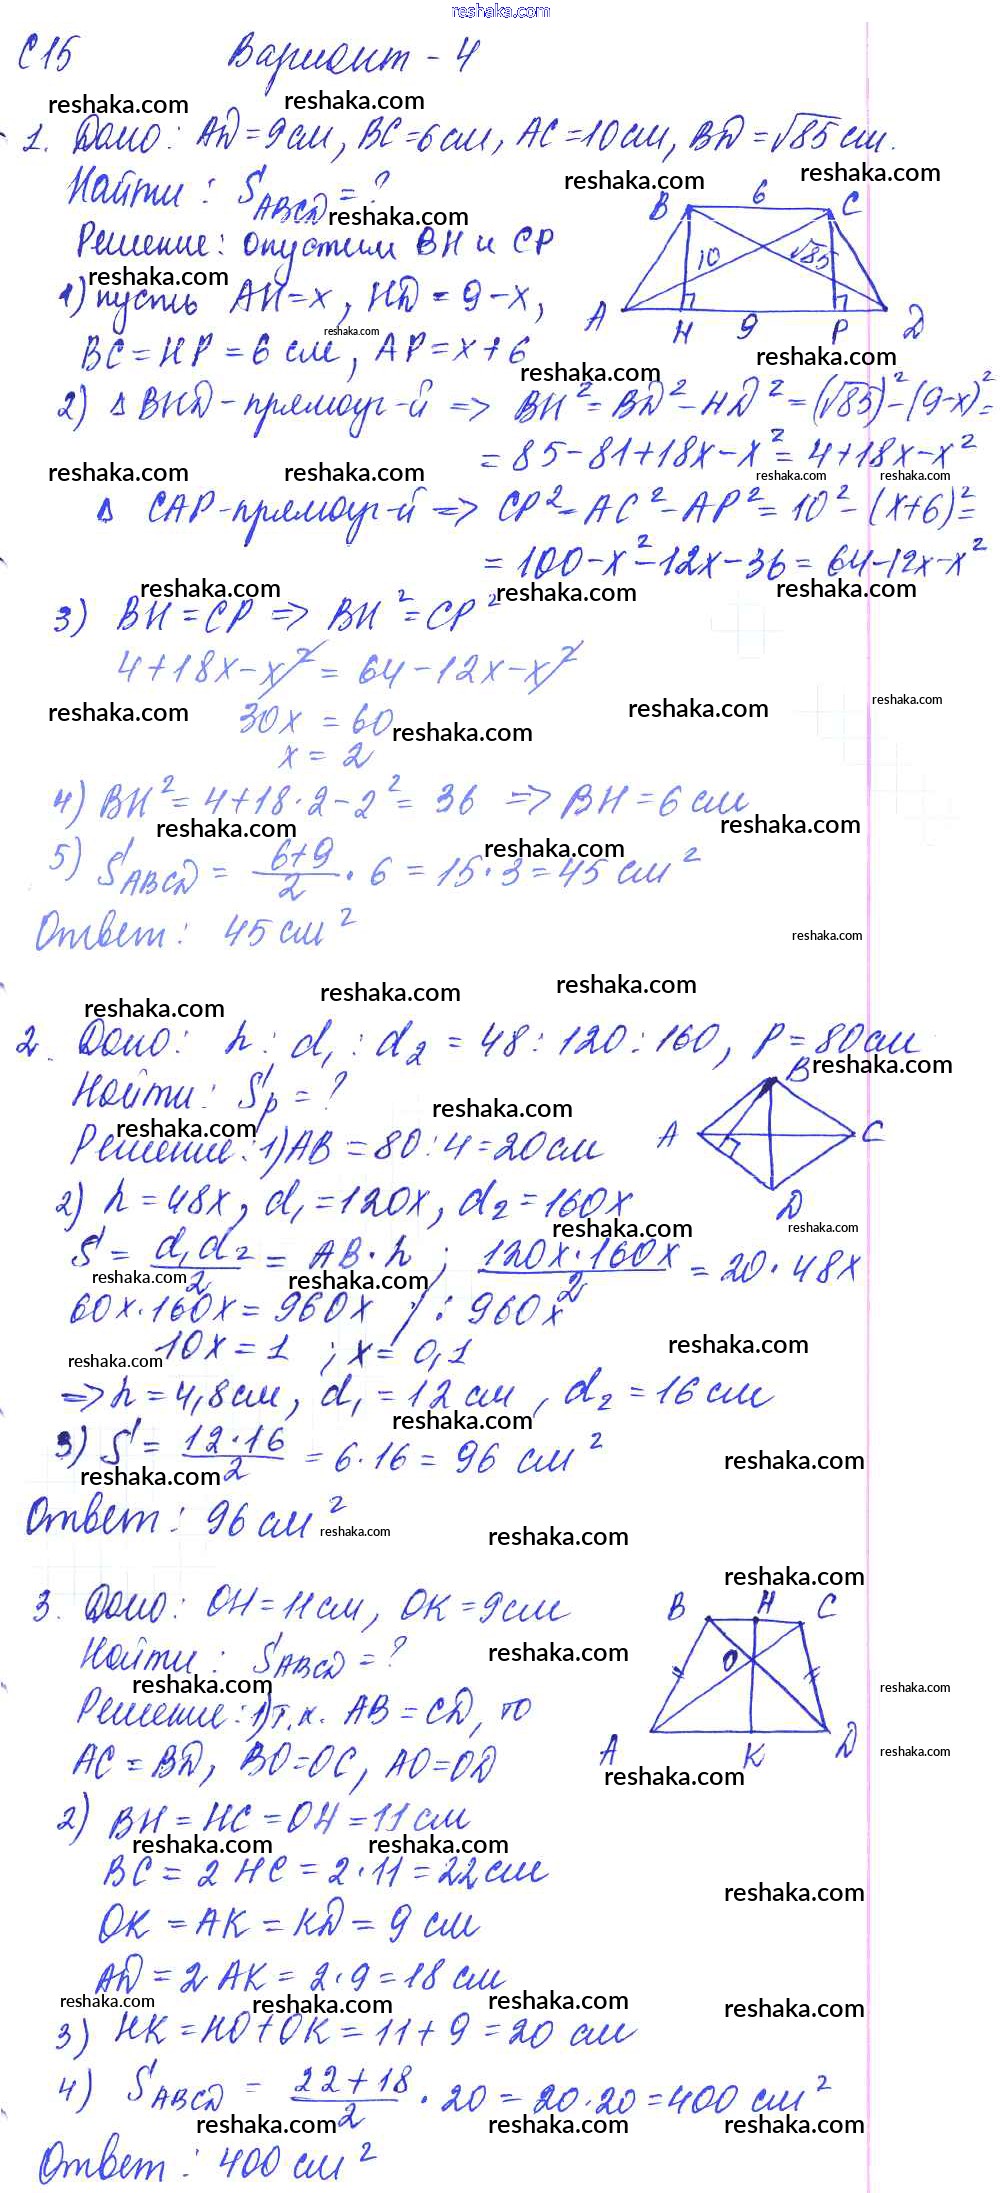 reshaka.com
С15 Вариант - 4
reshaka.com reshaka.com
1. Дано: AD = 9 см, BC = 6 см, AC = 10 см, BD = √85 см.
reshaka.com reshaka.com
Найти: S_ABCD = ?
reshaka.com
B 6 C
Решение: опустим BH и CP
10 √85
reshaka.com
1) пусть AH = x, HD = 9 - x,
A H 9 P D
reshaka.com
BC = HP = 6 см, AP = x + 6
reshaka.com reshaka.com
2) Δ BHD - прямоуг-й => BH² = BD² - HD² = (√85)² - (9-x)² =
= 85 - 81 + 18x - x² = 4 + 18x - x²
reshaka.com reshaka.com reshaka.com reshaka.com
Δ CAP - прямоуг-й => CP² = AC² - AP² = 10² - (x+6)² =
= 100 - x² - 12x - 36 = 64 - 12x - x²
reshaka.com reshaka.com reshaka.com
3) BH = CP => BH² = CP²
4 + 18x - x² = 64 - 12x - x²
reshaka.com reshaka.com reshaka.com
30x = 60
reshaka.com
x = 2
4) BH² = 4 + 18·2 - 2² = 36 => BH = 6 см
reshaka.com reshaka.com
5) S_ABCD = (6+9)/2 · 6 = 15·3 = 45 см²
reshaka.com
Ответ: 45 см²
reshaka.com
reshaka.com reshaka.com reshaka.com
2. Дано: h : d₁ : d₂ = 48 : 120 : 160, P = 80 см
reshaka.com
B
Найти: Sр = ?
reshaka.com
reshaka.com
A C
Решение: 1) AB = 80 : 4 = 20 см
2) h = 48x, d₁ = 120x, d₂ = 160x
D
reshaka.com reshaka.com
S = d₁d₂/2 = AB · h ; 120x·160x/2 = 20·48x
reshaka.com reshaka.com
60x·160x = 960x / : 960x
10x = 1 ; x = 0,1
reshaka.com reshaka.com
=> h = 4,8 см, d₁ = 12 см, d₂ = 16 см
reshaka.com
3) S = 12·16/2 = 6·16 = 96 см²
reshaka.com reshaka.com
Ответ: 96 см²
reshaka.com reshaka.com
reshaka.com
3. Дано: OH = 11 см, OK = 9 см
B H C
Найти: S_ABCD = ?
reshaka.com
O
reshaka.com reshaka.com
Решение: 1) т.к. AB = CD, то
A K D
AC = BD, BO = OC, AO = OD
reshaka.com
reshaka.com
2) BH = HC = OH = 11 см
reshaka.com reshaka.com
BC = 2 HC = 2·11 = 22 см
reshaka.com
OK = AK = KD = 9 см
AD = 2 AK = 2·9 = 18 см
reshaka.com reshaka.com reshaka.com reshaka.com
3) HK = HO + OK = 11 + 9 = 20 см
4) S_ABCD = (22+18)/2 · 20 = 20·20 = 400 см²
reshaka.com reshaka.com reshaka.com
Ответ: 400 см²